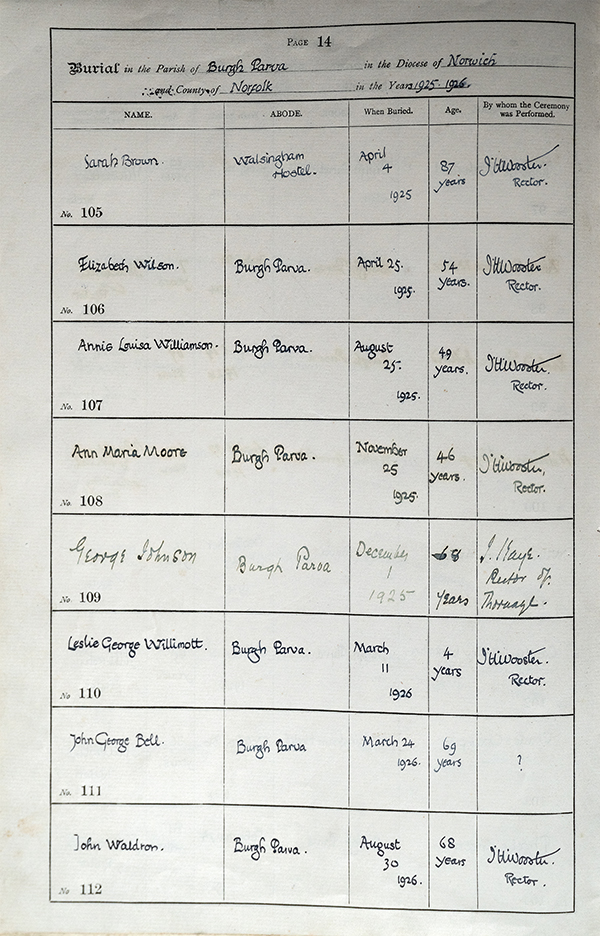 PAGE 14
Burial in the Parish of Burgh Parva in the Diocese of Norwich
and County of Norfolk in the Years 1925-1926.
NAME. ABODE. When Buried. Age. By whom the Ceremony was Performed.
Sarah Brown. Walsingham Hostel. April 4 1925 87 years Wooster. Rector.
No. 105
Elizabeth Wilson. Burgh Parva. April 25. 1925. 54 years. Wooster Rector.
No. 106
Annie Louisa Williamson. Burgh Parva. August 25. 1925. 49 years. Wooster. Rector.
No. 107
Ann Maria Moore Burgh Parva. November 25 1925. 46 years. Wooster, Rector.
No. 108
George Johnson Burgh Parva December 1 1925 68 years J. Kaye. Rector of Thornage.
No. 109
Leslie George Willimott. Burgh Parva. March 11 1926 4 years Wooster. Rector.
No 110
John George Bell. Burgh Parva March 24 1926. 69 years ?
No. 111
John Waldron. Burgh Parva. August 30 1926. 68 years Wooster. Rector.
No 112